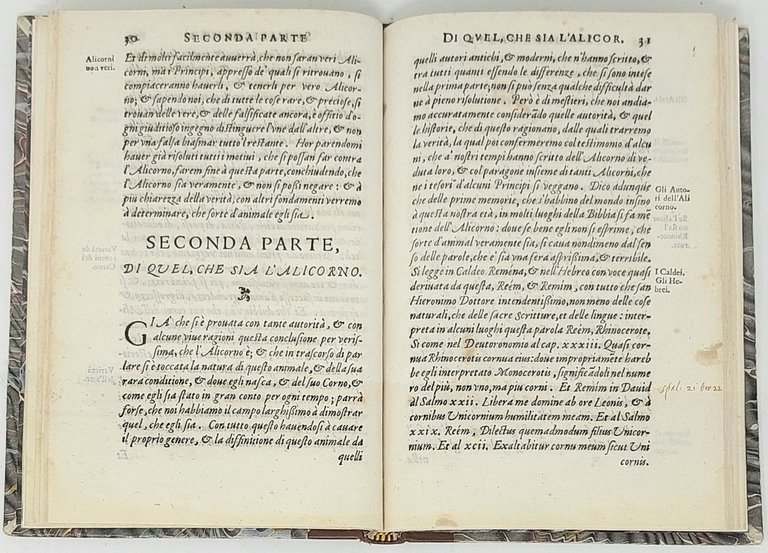 30 SECONDA PARTE
Alicorni
non veri.
Et di molti facilmente auuerrà, che non saran veri Ali-
corni, ma i Principi, appresso de' quali si ritrouano, si
compiaceranno hauerli, & tenerli per vero Alicor-
no; & sapendo noi, che di tutte le cose rare, & preciose, si
trouan delle vere, & delle falsificate ancora, è offitio d'o-
gni giuditioso ingegno distinguere l'vne dall'altre, & non
per vna falsa biasmar tutto'l restante. Hor parendomi
hauer già risoluti tutti i motiui, che si possan far contra
l'Alicorno, farem fine à questa parte, conchiudendo, che
l'Alicorno sia veramente, & non si possi negare: & à
più chiarezza della verità, con altri fondamenti verremo
à determinare, che sorte d'animale egli sia.
SECONDA PARTE,
DI QVEL, CHE SIA L'ALICORNO.
GIA' che si è prouata con tante autorità, & con
alcune viue ragioni questa conclusione per veris-
sima, che l'Alicorno è; & che in trascorso di par
lare si è toccata la natura di questo animale, & della sua
rara conditione, & doue egli nasca, & del suo Corno, &
come egli sia stato in gran conto per ogni tempo; parrà
forse, che noi habbiamo il campo larghissimo à dimostrar
quel, che egli sia. Con tutto questo hauendosi à cauare
il proprio genere, & la diffinitione di questo animale da
quelli
DI QVEL, CHE SIA L'ALICOR. 31
quelli autori antichi, & moderni, che n'hanno scritto, &
tra tutti quanti essendo le differenze, che si sono intese
nella prima parte, non si può senza qualche difficultà dar
ne à pieno risolutione. Però è di mestieri, che noi andia-
mo accuratamente considerãdo quelle autorità, & quel
le historie, che di questo ragionano, dalle quali trarremo
la verità, la qual poi confermeremo col testimonio d'alcu
ni, che a' nostri tempi hanno scritto dell'Alicorno di ve-
duta loro, & col paragone insieme di tanti Alicorni, che
ne i tesori d'alcuni Principi si veggano. Dico adunque
che delle prime memorie, che s'habbino del mondo insino
à questa nostra età, in molti luoghi della Bibbia si fa me
tione dell'Alicorno: doue se bene egli non si esprime, che
sorte d'animal veramente sia, si caua nondimeno dal sen
so delle parole, che e' sia vna fera asprissima, & terribile.
Si legge in Caldeo Remána, & nell'Hebreo con voce quasi
deriuata da questa, Reém, & Remím, con tutto che san
Hieronimo Dottore intendentissimo, non meno delle cose
naturali, che delle sacre Scritture, et delle lingue: inter-
preta in alcuni luoghi questa parola Reém, Rhinocerote.
Si come nel Deuteronomio al cap. xxxiii. Quasi cor-
nua Rhinocerotis cornua eius: doue impropriamẽte hareb
be egli interpretato Monocerotis, significãdoli nel nume
ro del più, non vno, ma piu corni. Et Remím in Dauid
al Salmo xxii. Libera me domine ab ore Leonis, & à
cornibus Vnicornium humilitatem meam. Et al Salmo
xxix. Reém, Dilectus quemadmodum filius Vnicor-
nium. Et al xcii. Exaltabitur cornu meum sicut Vni
cornis.
Gli Auto-
ri dell'Ali
corno.
I Caldei.
Gli He-
brei.